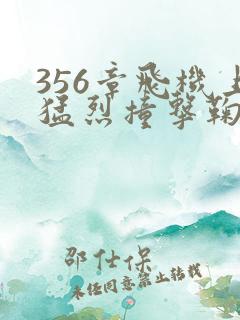 356章飛機上
猛烈撞擊鞠
邵仕保
未经同意禁止转载